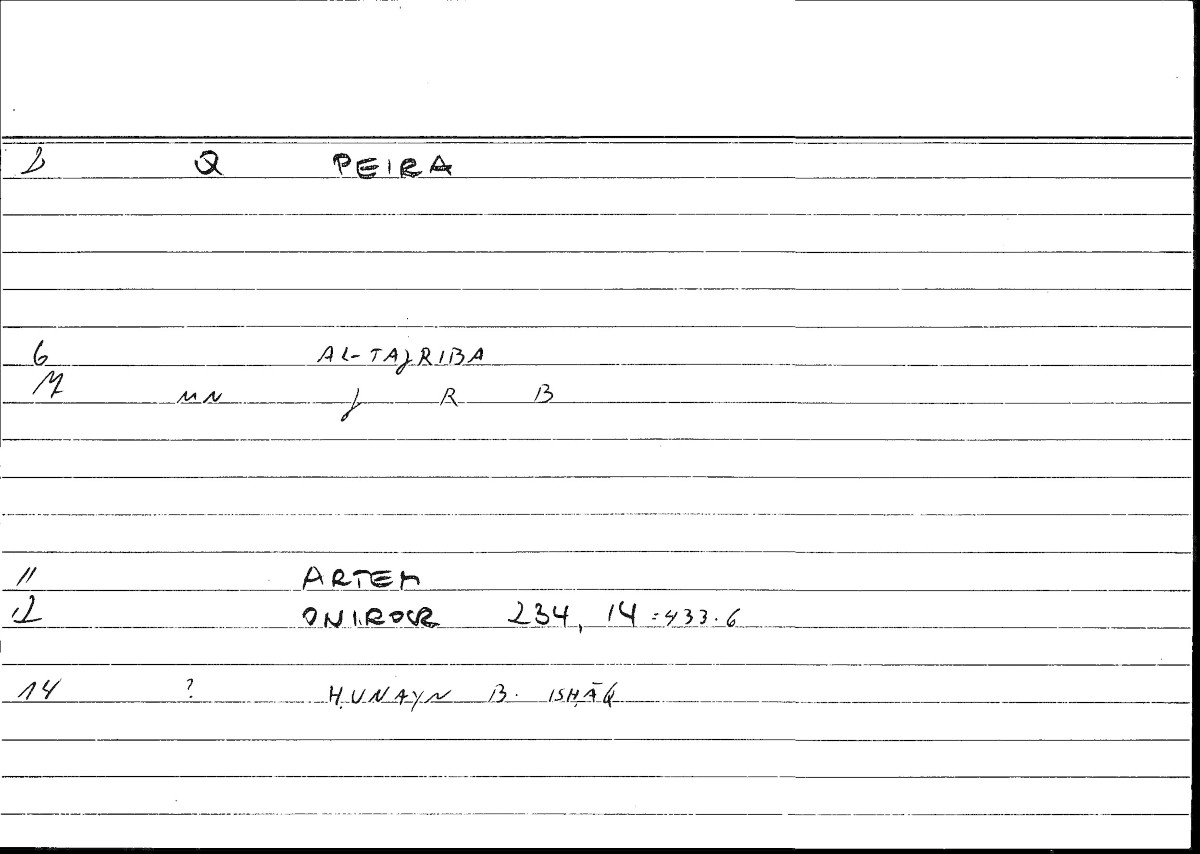 Q PEIRA
6 AL-TAJRIBA
MN J R B
11 ARTEM
12 ONIROCR 234, 14 = 433.6
14 ? ḤUNAYN B. ISḤĀQ